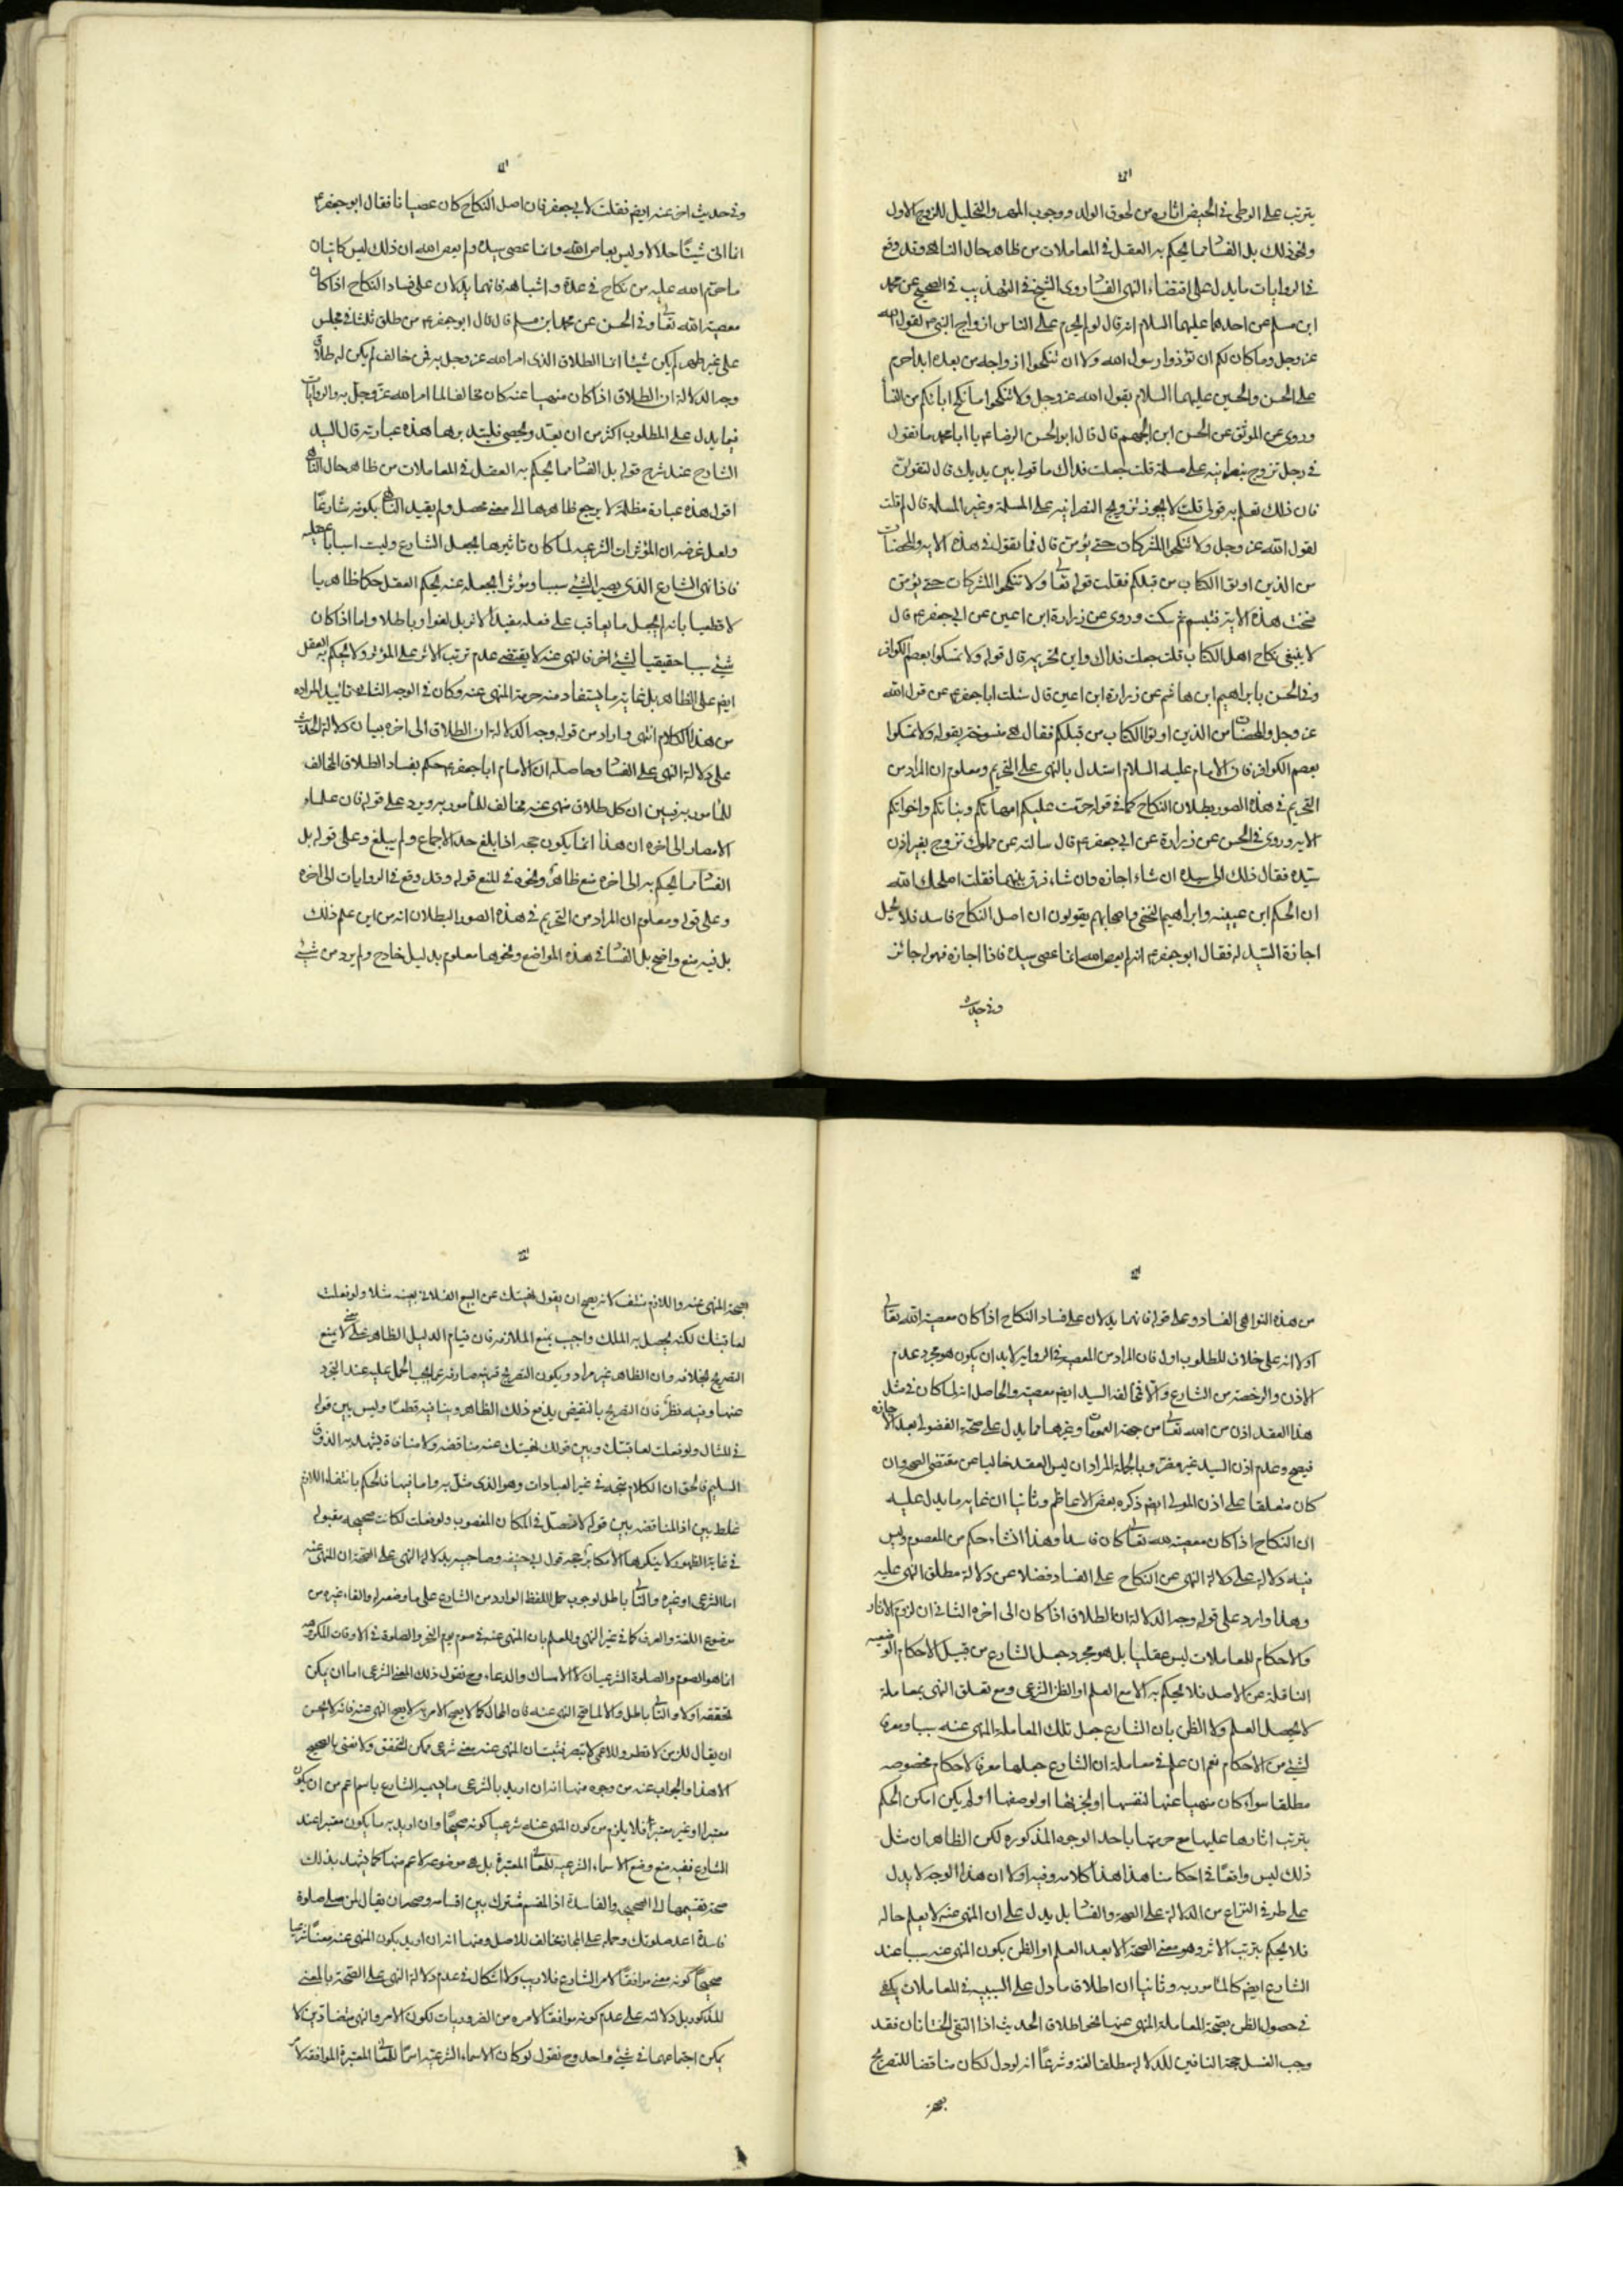 يترتب على الوطى فى الحيض اثاره من لحوق الولد ووجوب المهر والتحليل للزوج الاول
ونحو ذلك بل الفسا مما يحكم به العقل فى المعاملات من ظاهر حال الناهى وقد وقع
فى الروايات ما يدل على اقتضاء النهى الفسا روى الشيخ فى التهذيب فى الصحيح عن محمد
ابن مسلم عن احدهما عليهما السلام انه قال لو لم يحرم على الناس ازواج النبى ص لقول الله
عز وجل وما كان لكم ان تؤذوا رسول الله ولا ان تنكحوا ازواجه من بعده ابدا حرم
على الحسن والحسين عليهما السلام بقول الله عز وجل ولا تنكحوا ما نكح اباؤكم من النسا
وروى عن الموثق عن الحسن ابن الجهم قال قال ابو الحسن الرضا ع يا ابا محمد ما تقول
فى رجل تزوج نصرانيه على مسلمة قلت جعلت فداك ما قولى بين يديك قال لتقولن
فان ذلك تعلم به قولى قلت لا يجوز تزويج النصرانيه على المسلمة وغير المسلمة قال لم قلت
لقول الله عز وجل ولا تنكحوا المشركات حتى يؤمن قال فما تقول فى هذه الايه والمحصنات
من الذين اوتوا الكتاب من قبلكم فقلت قوله تعا ولا تنكحوا المشركات حتى يؤمن
نسخت هذه الاية فتبسم ثم سكت وروى عن زرارة ابن اعين عن ابى جعفر ع قال
لا ينبغى نكاح اهل الكتاب قلت جعلت فداك واين تحريمه قال قوله ولا تمسكوا بعصم الكوافر
وفى الحسن بابراهيم ابن هاشم عن زرارة ابن اعين قال سئلت ابا جعفر ع عن قول الله
عز وجل والمحصنات من الذين اوتوا الكتاب من قبلكم فقال هى منسوخة بقوله ولا تمسكوا
بعصم الكوافر فان الامام عليه السلام استدل بالنهى على التحريم ومعلوم ان المراد من
التحريم فى هذه الصور بطلان النكاح كما فى قوله حرمت عليكم امهاتكم وبناتكم واخواتكم
الايه وروى فى الحسن عن زرارة عن ابى جعفر ع قال سالته عن مملوك تزوج بغير اذن
سيده فقال ذلك الى سيده ان شاء اجازه وان شاء فرق بينهما فقلت اصلحك الله
ان الحكم ابن عيينه وابراهيم النخعى واصحابهم يقولون ان اصل النكاح فاسد فلا يحل
اجازة السيد له فقال ابو جعفر ع انه لم يعص الله انما عصى سيده فاذا اجازه فهو له جائز
وفى حديث
وفى حديث اخر عنه ايضا فقلت لابى جعفر فان اصل النكاح كان عصيانا فقال ابو جعفر ع
انما اتى شيئا حلالا وليس بعاص الله وانما عصى سيده ولم يعص الله ان ذلك ليس كاتيان
ما حرم الله عليه من نكاح فى عدة واشباهه فانهما يدلان على فساد النكاح اذا كان
معصية الله تعا وفى الحسن عن محمد ابن مسلم قال قال ابو جعفر ع من طلق ثلثا فى مجلس
على غير طهر لم يكن شيئا انما الطلاق الذى امر الله عز وجل به فمن خالف لم يكن له طلاق
وجه الدلالة ان الطلاق اذا كان منهيا عنه كان مخالفا لما امر الله عز وجل به والروايات
فيما يدل على المطلوب اكثر من ان يعد ويحصى فليتدبر ها هذه عبارته قال السيد
الشارح عند شرح قوله بل الفسا مما يحكم به العقل فى المعاملات من ظاهر حال الناهى
اقول هذه عبارة مظلمة لا يرجع ظاهرها الى معنى محصل ولم يقيد الناهى بكونه شارعا
ولعل غرضه ان المؤثرات الشرعيه لما كان تاثيرها بجعل الشارع وليست اسبابا عقليه
فاذا نهى الشارع الذى يصير الشئ سببا ومؤثرا بجعله عنه يحكم العقل حكما ظاهريا
لا قطعيا بانه لم يجعل ما يعاقب على فعله مفيدا لاثر بل لغوا وباطلا واما اذا كان
شئ سببا حقيقيا لشئ اخر فالنهى عنه لا يقتضى عدم ترتب الاثر على المؤثر ولا يحكم به العقل
ايضا على الظاهر بل غاية ما يستفاد منه حرمة المنهى عنه وكان فى الوجه الثانى تاييد لمراده
من هذا الكلام انتهى واراد من قوله وجه الدلالة ان الطلاق الى اخره بيان دلالة الحديث
على دلالة النهى على الفسا وحاصله ان الامام ابا جعفر ع حكم بفساد الطلاق المخالف
للمأمور به فبين ان كل طلاق منهى عنه مخالف للمأمور به ويرد على قوله فان علماء
الامصار الى اخره ان هذا انما يكون حجة اذا بلغ حد الاجماع ولم يبلغ وعلى قوله بل
الفسا مما يحكم به الى اخره منع ظاهر ونحوه فى المنع قوله وقد وقع فى الروايات الى اخره
وعلى قوله ومعلوم ان المراد من التحريم فى هذه الصور البطلان انه من اين علم ذلك
بل فيه منع واضح بل الفسا فى هذه المواضع ونحوها معلوم بدليل خارج ولم يرد من شئ
من هذه النواهى الفساد وعلى قوله فانهما يدلان على فساد النكاح اذا كان معصية الله تعالى
اولا انه على خلاف المطلوب اول فان المراد من المعصية فى الرواية لا بد ان يكون هو مجرد عدم
الاذن والرخصة من الشارع والا فمخالفة السيد ايضا معصية والحاصل انه لما كان فى مثل
هذا العقد اذن من الله تعا من جهة العمومات وغيرها مما يدل على صحة الفضولى بعد الاجازه
فيصح وعدم اذن السيد غير مضر وبالجملة المراد ان ليس العقد خاليا عن مقتضى الصحة وان
كان معلقا على اذن المولى ايضا ذكره بعض الاعاظم وثانيا ان غاية ما يدل عليه
ان النكاح اذا كان معصية لله تعالى كان فاسدا وهذا انشاء حكم من المعصوم وليس
فيه دلالة على دلالة النهى عن النكاح على الفساد فضلا عن دلالة مطلق النهى عليه
وهذا وارد على قوله وجه الدلالة ان الطلاق اذا كان الى اخره الثانى ان لزوم الاثار
والاحكام للمعاملات ليس عقليا بل هو مجرد جعل الشارع من قبيل الاحكام الوضعيه
الناقلة عن الاصل فلا يحكم به الا مع العلم او الظن الشرعى ومع تعلق النهى بمعاملة
لا يحصل العلم ولا الظن بان الشارع جعل تلك المعاملة المنهى عنه سببا ومعرفا
لشئ من الاحكام نعم ان علم فى معاملة ان الشارع جعلها معرفا لاحكام مخصوصه
مطلقا سواء كان منهيا عنها لنفسها او لجزئها او لوصفها او لم يكن امكن الحكم
بترتب اثارها عليها مع حرمتها باحد الوجوه المذكوره لكن الظاهر ان مثل
ذلك ليس واقعا فى احكامنا هذا هذا كلامه وفيه اولا ان هذا الوجه لا يدل
على طرفى النزاع من الدلالة على الصحة والفسا بل يدل على ان المنهى عنه لا يعلم حاله
فلا يحكم بترتب الاثر وهو معنى الصحة الا بعد العلم او الظن بكون المنهى عنه سببا عند
الشارع ايضا كالمأمور به وثانيا ان اطلاق ما دل على السببيه فى المعاملات يكفى
فى حصول الظن بصحة المعاملة المنهى عنها نحو اطلاق الحديث اذا التقى الختانان فقد
وجب الغسل حجة النافين للدلالة مطلقا لغة وشرعا انه لو دل لكان مناقضا للتصريح
بصحة
بصحة المنهى عنه واللازم منتف لانه يصح ان يقول نهيتك عن البيع الفلانى بعينه مثلا ولو فعلت
لعاقبتك لكنه يحصل به الملك واجيب بمنع الملازمه فان قيام الدليل الظاهر على شئ لا يمنع
التصريح بخلافه وان الظاهر غير مراد ويكون التصريح قرينة صارفة عما يجب الحمل عليه عند التجرد
عنها وفيه نظر فان التصريح بالنقيض يدفع ذلك الظاهر وينافيه قطعا وليس بين قوله
فى المثال ولو فعلت لعاقبتك وبين قولك نهيتك عنه مناقضه ولا منافاة يشهد به الذوق
السليم فالحق ان الكلام يتجه فى غير العبادات وهو الذى مثل به واما فيها فالحكم بانتفاء اللازم
غلط بين اذ المناقضه بين قوله لا تصل فى المكان المغصوب ولو فعلت لكانت صحيحة مقبوله
فى غاية الظهور لا ينكرها الا مكابر حجة قول ابى حنيفه وصاحبيه بدلالة النهى على الصحة ان المنهى عنه
اما الشرعى او غيره والثانى باطل لوجوب حمل اللفظ الوارد من الشارع على ما وضعه له والغاء غيره من
موضوع اللغة والعرف كما فى غير النهى وللعلم بان المنهى عنه فى صوم يوم النحر والصلوة فى الاوقات المكروهه
انما هو الصوم والصلوة الشرعيان لا الامساك والدعاء وح نقول ذلك المعنى الشرعى اما ان يمكن
تحققه اولا والثانى باطل والا لما صح النهى عنه فان المحال كما لا يصح الامر به لا يصح النهى عنه فانه لا يحسن
ان يقال للزمن لا تطر وللاعمى لا تبصر فثبت ان المنهى عنه معنى شرعى ممكن التحقق ولا نعنى بالصحيح
الا هذا والجواب عنه من وجوه منها انه ان اريد بالشرعى ما يسميه الشارع باسم اعم من ان يكون
معتبرا او غير معتبر فلا يلزم من كون المنهى عنه شرعيا كونه صحيحا وان اريد به ما يكون معتبرا عند
الشارع ففيه منع وضع الاسماء الشرعيه للمعانى المعتبرة بل هى موضوعه لاعم منها كما يشهد بذلك
صحة تقسيمها الى الصحيح والفاسدة اذ المقسم مشترك بين اقسامه وصحة ان يقال لمن صلى صلوة
فاسدة اعد صلوتك وحمله على المجاز مخالف للاصل ومنها انه ان اريد بكون المنهى عنه معنا شرعيا
صحيحا كونه معنى موافقا لامر الشارع فلا ريب ولا اشكال فى عدم دلالة النهى على الصحة بالمعنى
المذكور بل دلالته على عدم كونه موافقا لامره من الضروريات لكون الامر والنهى متضادين لا
يمكن اجتماعهما فى شئ واحد وح نقول لو كان الاسماء الشرعيه اسما للمعانى المعتبرة الموافقه لامر